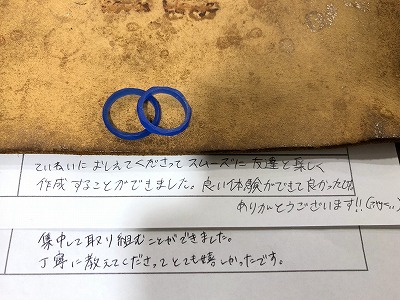 ていねいにおしえてくださってスムーズに友達と楽しく
作成することができました。良い体験ができて良かったです。
ありがとうございます!!
集中して取り組むことができました。
丁寧に教えてくださってとても嬉しかったです。